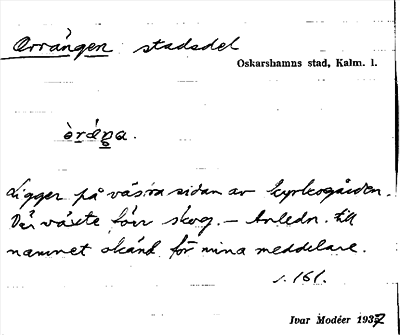 Orrängen stadsdel
Oskarshamns stad, Kalm. l.
òrä́ŋa.
Ligger på västra sidan av kyrkogården.
Där växte förr skog. – Anledn. till
namnet okänd för mina meddelare.
s. 161.
Ivar Modéer 1937